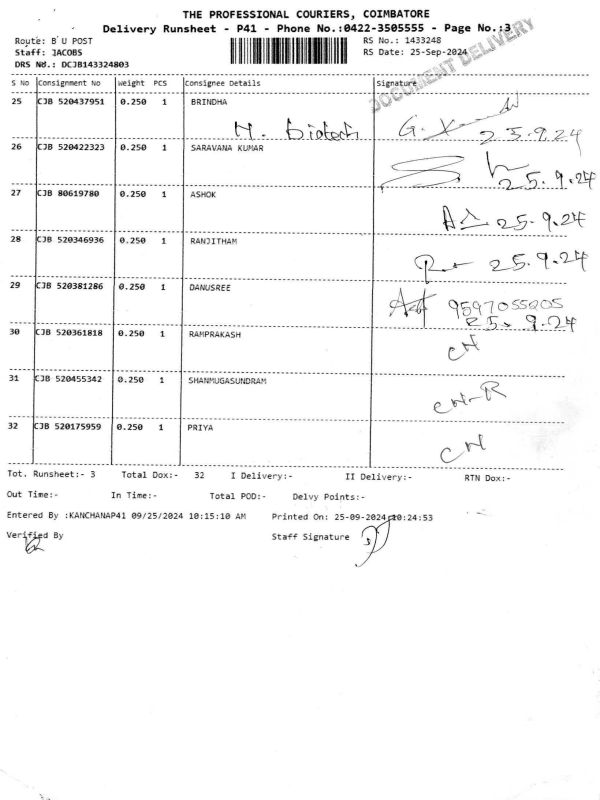 THE PROFESSIONAL COURIERS, COIMBATORE
Delivery Runsheet - P41 - Phone No.:0422-3505555 - Page No.:3
Route: B U POST
RS No.: 1433248
Staff: JACOBS
RS Date: 25-Sep-2024
DRS No.: DCJB143324803
DOCUMENT DELIVERY
S No Consignment No Weight PCS Consignee Details Signature
25 CJB 520437951 0.250 1 BRINDHA
25.9.24
26 CJB 520422323 0.250 1 SARAVANA KUMAR
25.9.24
27 CJB 80619780 0.250 1 ASHOK
25.9.24
28 CJB 520346936 0.250 1 RANJITHAM
25.9.24
29 CJB 520381286 0.250 1 DANUSREE
25.9.24
30 CJB 520361818 0.250 1 RAMPRAKASH
CN
31 CJB 520455342 0.250 1 SHANMUGASUNDRAM
CN-R
32 CJB 520175959 0.250 1 PRIYA
CN
Tot. Runsheet:- 3 Total Dox:- 32 I Delivery:- II Delivery:- RTN Dox:-
Out Time:- In Time:- Total POD:- Delvy Points:-
Entered By :KANCHANAP41 09/25/2024 10:15:10 AM Printed On: 25-09-2024 10:24:53
Verified By Staff Signature